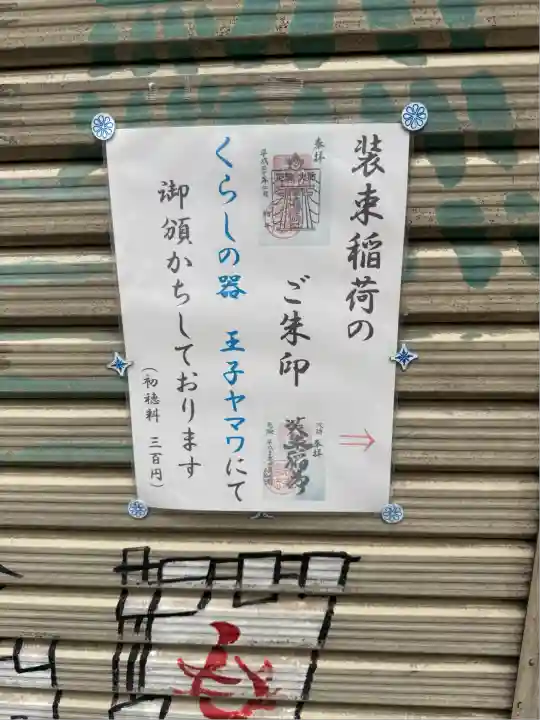 装束稲荷の
ご朱印
奉拝
奉拝
くらしの器 王子ヤマワにて
御頒かちしております
(初穂料 三百円)